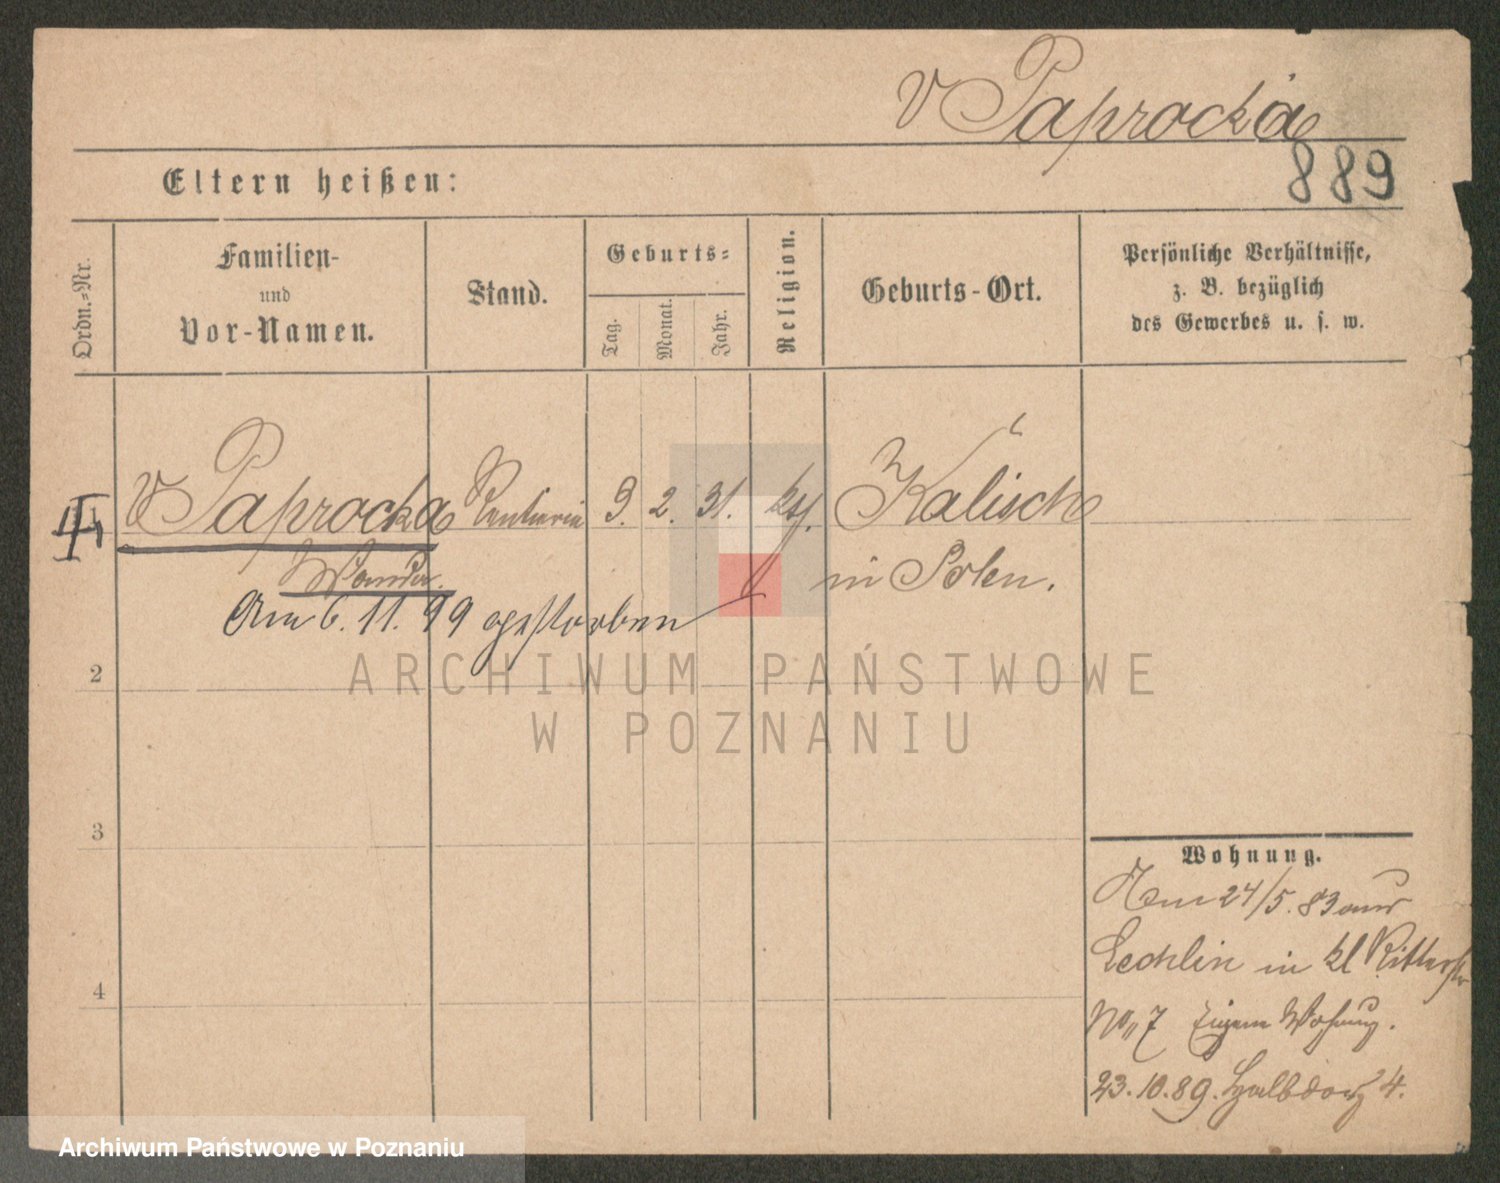 v Paprocka
889
Eltern heißen:
Ordn.-Nr.
Familien-
und
Vor-Namen.
Stand.
Geburts-
Tag.
Monat.
Jahr.
Religion.
Geburts-Ort.
Persönliche Verhältnisse,
z. B. bezüglich
des Gewerbes u. s. w.
v Paprocka Rentierin 9. 2. 31. Kalisch
Wanda. in Polen.
Am 6. 11. 99 gestorben
2
3
4
Wohnung.
Am 24/5. 83 aus
Lechlin in kl Ritterstr
No 7 Eigene Wohnung.
23.10.89. Halbdorf 4.
ARCHIWUM PAŃSTWOWE
W POZNANIU
Archiwum Państwowe w Poznaniu